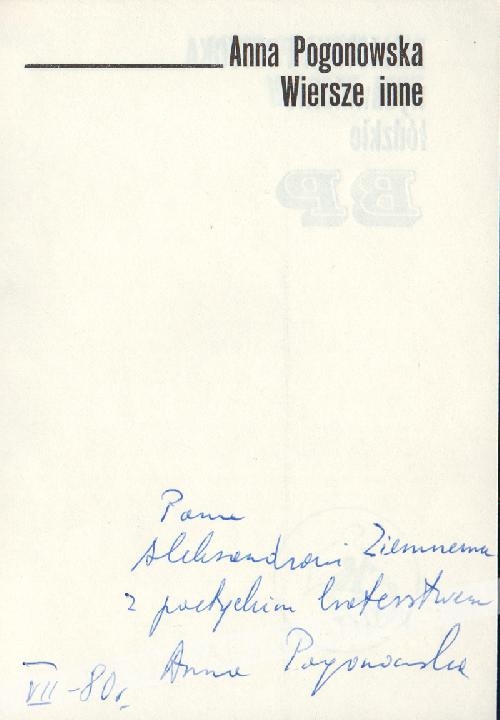 Anna Pogonowska
Wiersze inne
łódzkie
BP
Panu
Aleksandrowi Ziemnemu
z poetyckim braterstwem
Anna Pogonowska
VII - 80 r.